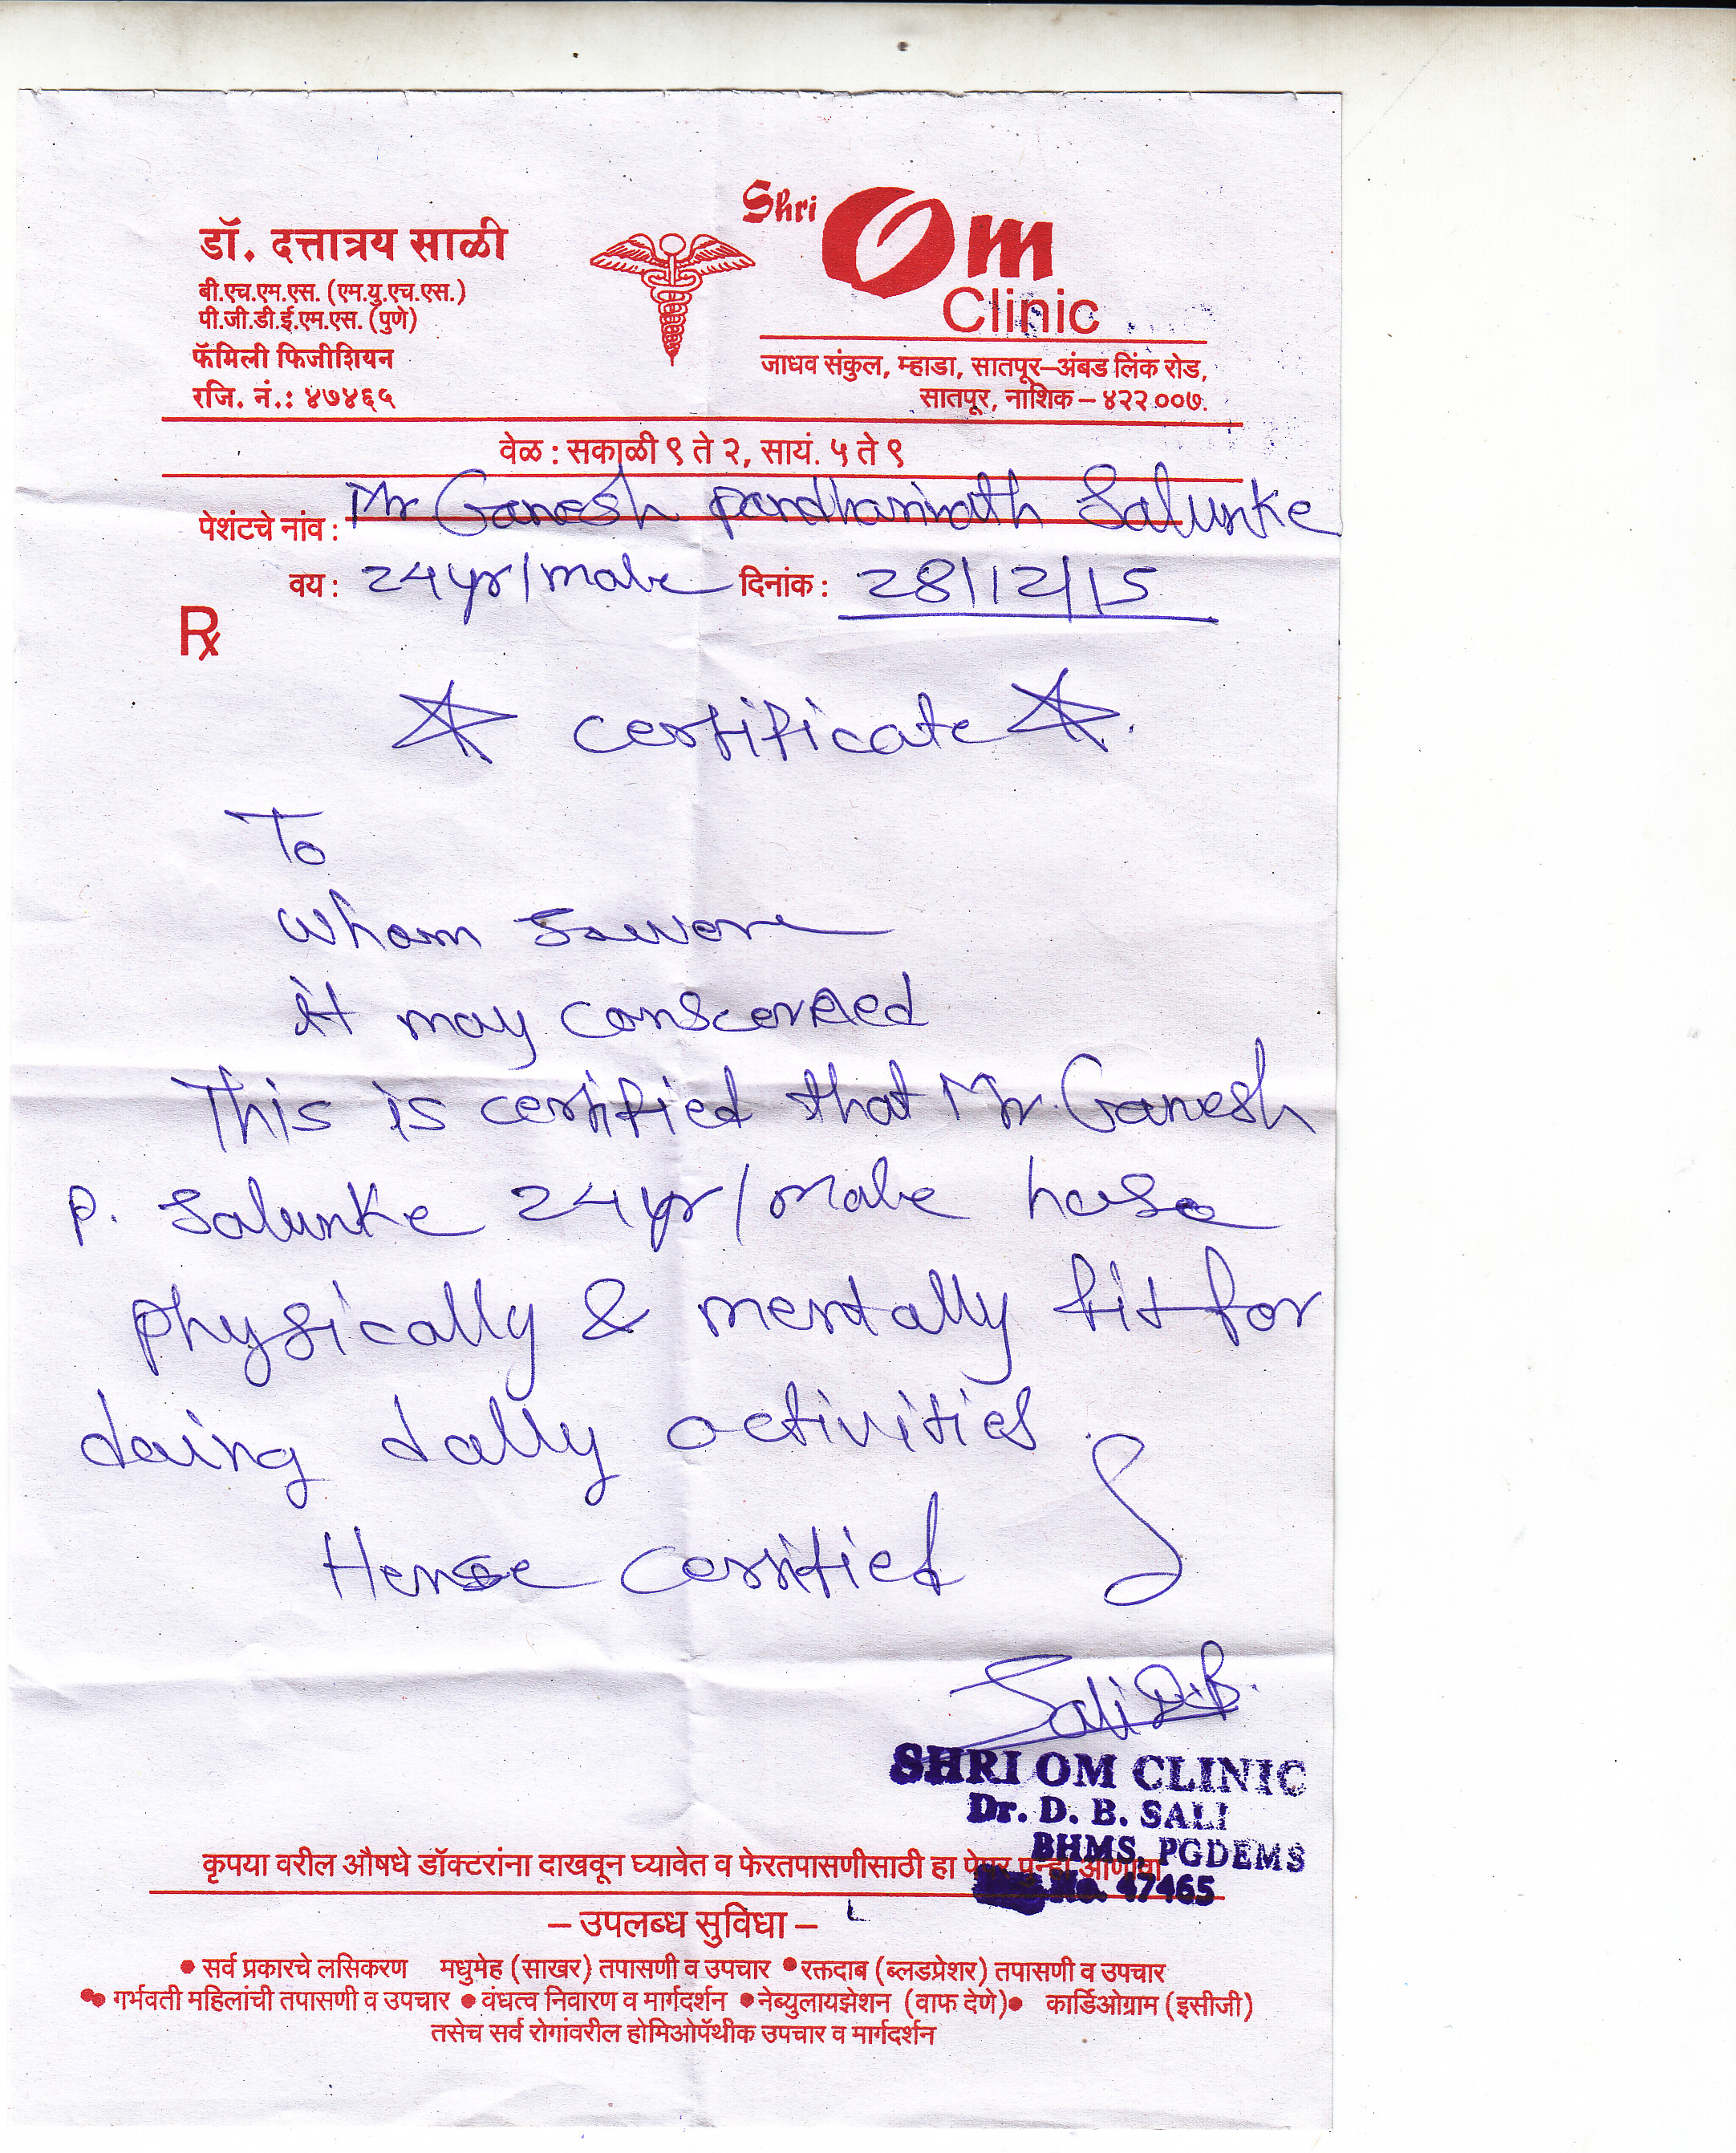 डॉ. दत्तात्रय साळी
बी.एच.एम.एस. (एम.यु.एच.एस.)
पी.जी.डी.ई.एम.एस. (पुणे)
फॅमिली फिजीशियन
रजि. नं.: ४७४६५
Shri Om
Clinic
जाधव संकुल, म्हाडा, सातपूर-अंबड लिंक रोड,
सातपूर, नाशिक - ४२२ ००७.
वेळ : सकाळी ९ ते २, सायं. ५ ते ९
पेशंटचे नांव : Mr Ganesh pandharinath Salunke
वय : 24yr/male दिनांक : 28/12/15
Rx
certificate
To
whom
it may
This is certified that Mr. Ganesh
P. Salunke 24yr/male
physically & mentally fit for
doing daily activities.
Hense certified
Sali D.B.
SHRI OM CLINIC
Dr. D. B. SALI
BHMS, PGDEMS
No. 47465
कृपया वरील औषधे डॉक्टरांना दाखवून घ्यावेत व फेरतपासणीसाठी हा पेपर पुन्हा आणावा
– उपलब्ध सुविधा –
• सर्व प्रकारचे लसिकरण मधुमेह (साखर) तपासणी व उपचार • रक्तदाब (ब्लडप्रेशर) तपासणी व उपचार
• गर्भवती महिलांची तपासणी व उपचार • वंधत्व निवारण व मार्गदर्शन • नेब्युलायझेशन (वाफ देणे) • कार्डिओग्राम (इसीजी)
तसेच सर्व रोगांवरील होमिओपॅथीक उपचार व मार्गदर्शन